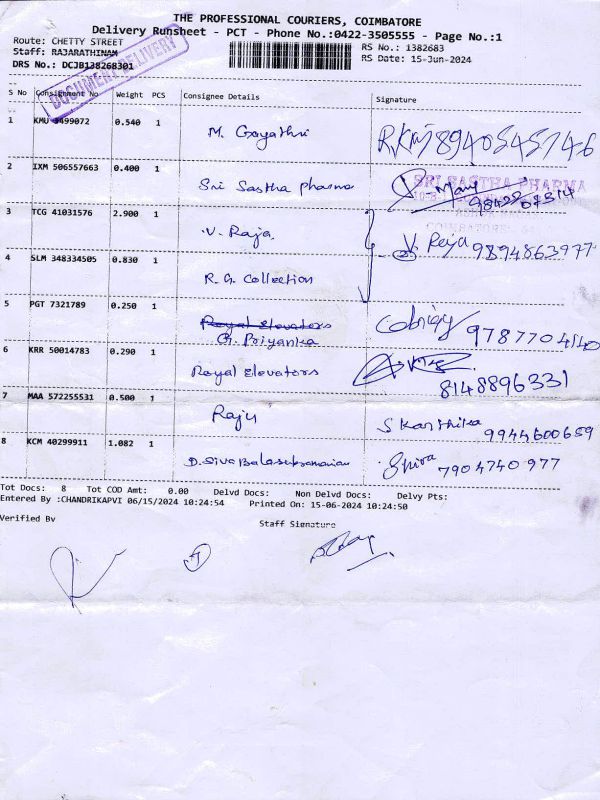 THE PROFESSIONAL COURIERS, COIMBATORE
Delivery Runsheet - PCT - Phone No.:0422-3505555 - Page No.:1
Route: CHETTY STREET
Staff: RAJARATHINAM
DRS No.: DCJB138268301
RS No.: 1382683
RS Date: 15-Jun-2024
DOCUMENT DELIVERY
S No Consignment No Weight PCS Consignee Details Signature
1 KMU 3499072 0.540 1 M. Gayathri 8940545746
2 IXM 506557663 0.400 1 Sri Sastha Pharma
SRI SASTHA PHARMA
3 TCG 41031576 2.900 1 V. Raja, V. Reja 9894863977
4 SLM 348334505 0.830 1 R. G. Collection
5 PGT 7321789 0.250 1 Royal Elevators
G. Priyanka 9787704140
6 KRR 50014783 0.290 1 Royal Elevators 8148896331
7 MAA 572255531 0.500 1 Raju S Karthika 9944600659
8 KCM 40299911 1.082 1 D. Siva Balasubramanian Shiva 7904740977
Tot Docs: 8 Tot COD Amt: 0.00 Delvd Docs: Non Delvd Docs: Delvy Pts:
Entered By :CHANDRIKAPVI 06/15/2024 10:24:54 Printed On: 15-06-2024 10:24:50
Verified By Staff Signature